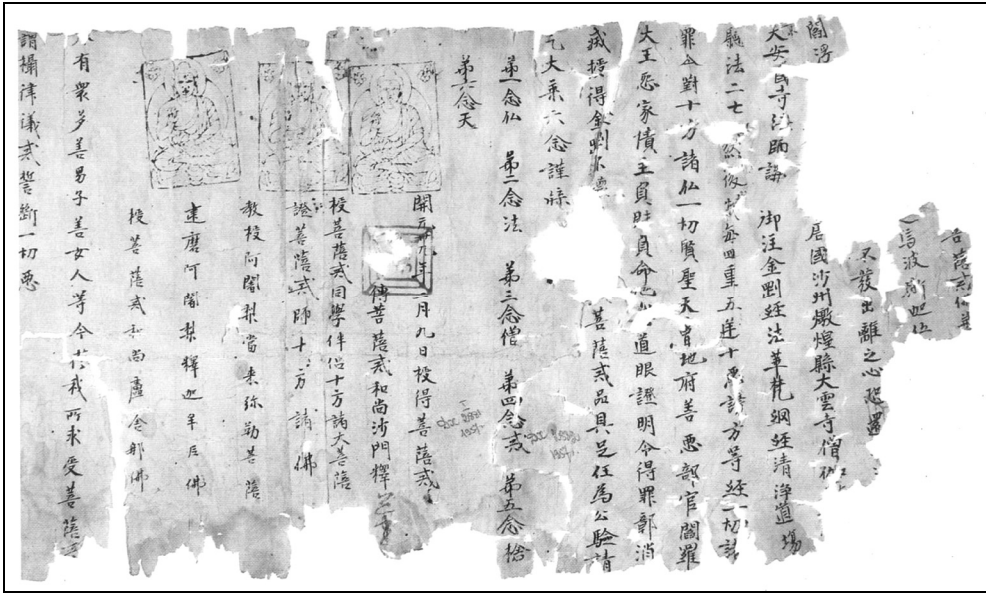 菩薩戒
不發出離之心恐還
閻浮 唐國沙州燉煌縣大雲寺僧
大安國寺法師 御注金剛經法華梵網經清淨道場
聽法二七 然後 每 四重五逆十惡謗方等經一切諸
罪今對十方諸仏一切賢聖天曹地府善惡部官閻羅
大王惡家債主負財負命 道眼證明令得罪鄣消
滅授得金剛 菩薩戒品具足任為公驗請
乞大乘六念謹牒
第一念仏 第二念法 第三念僧 第四念戒 第五念捨
第六念天
開元 年 月九日授得菩薩戒
傳菩薩戒和尚沙門釋
授菩薩戒同學伴侶十方諸大菩薩
證菩薩戒師十方諸佛
教授阿闍梨當來弥勒菩薩
羯磨阿闍梨釋迦牟尼佛
授菩薩戒和尚盧舍那佛
有眾多善男子善女人等今於我所求受菩薩
謂攝律儀戒誓斷一切惡